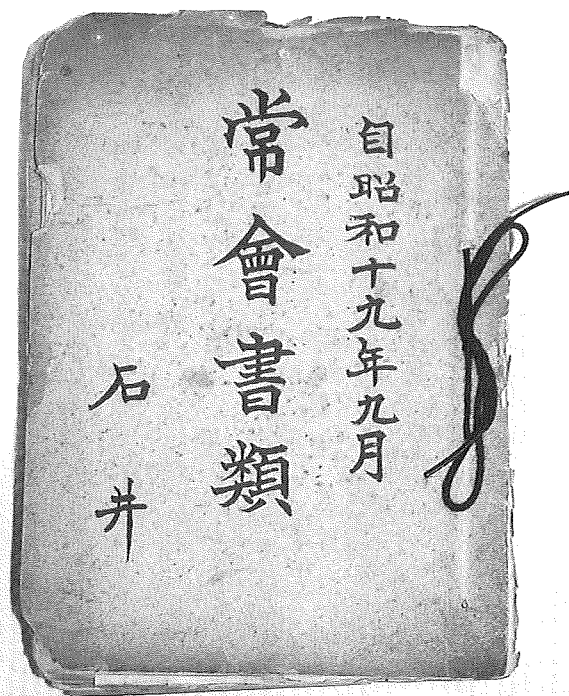 自昭和十九年九月
常會書類
石井